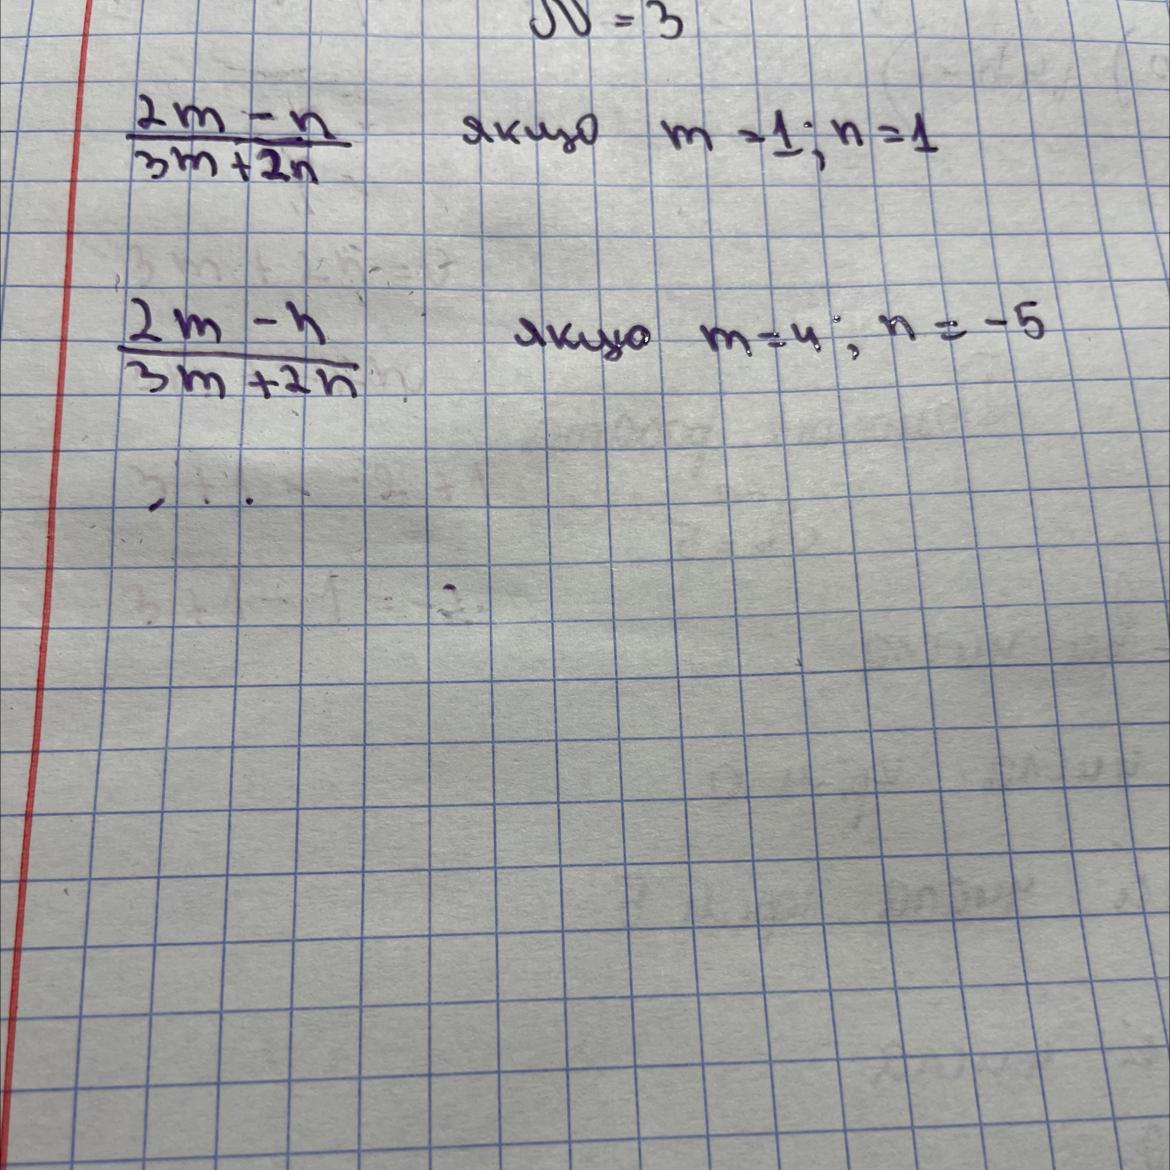 № = 3
2m - n
3m + 2n
якщо m = 1; n = 1
2m - n
3m + 2n
якщо m = 4; n = -5